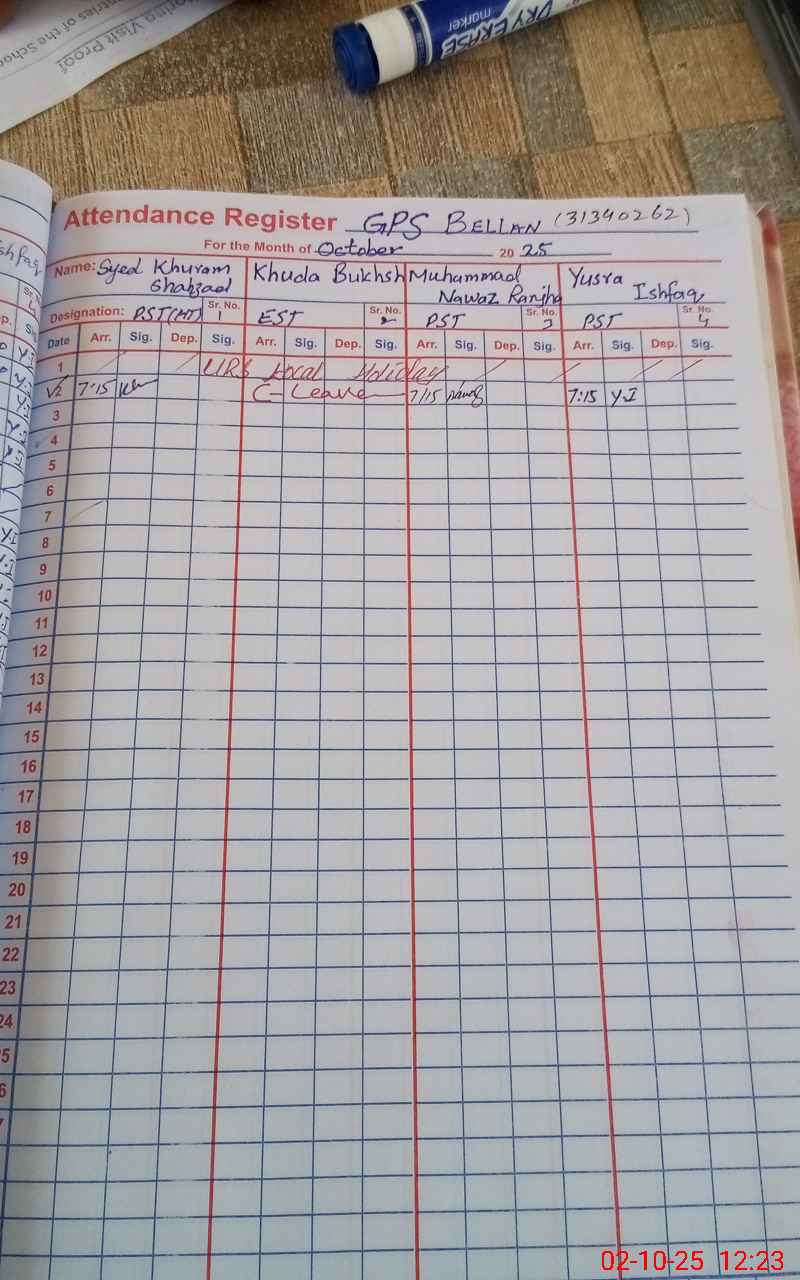 Visit Proof
ntries of the Schoo
DRY ERASE
marker
Attendance Register GPS BELLAN (31340262)
For the Month of October 20 25
Name: Syed Khuram Shahzad Khuda Bukhsh Muhammad Nawaz Ranjha Yusra Ishfaq
Designation: PST(HT) Sr. No. 1 EST Sr. No. 2 PST Sr. No. 3 PST Sr. No. 4
Date Arr. Sig. Dep. Sig. Arr. Sig. Dep. Sig. Arr. Sig. Dep. Sig. Arr. Sig. Dep. Sig.
1 Local Holiday
2 7:15 C-Leave 7/15 7:15 Y.I
3
4
5
6
7
8
9
10
11
12
13
14
15
16
17
18
19
20
21
22
23
24
5
6
02-10-25 12:23